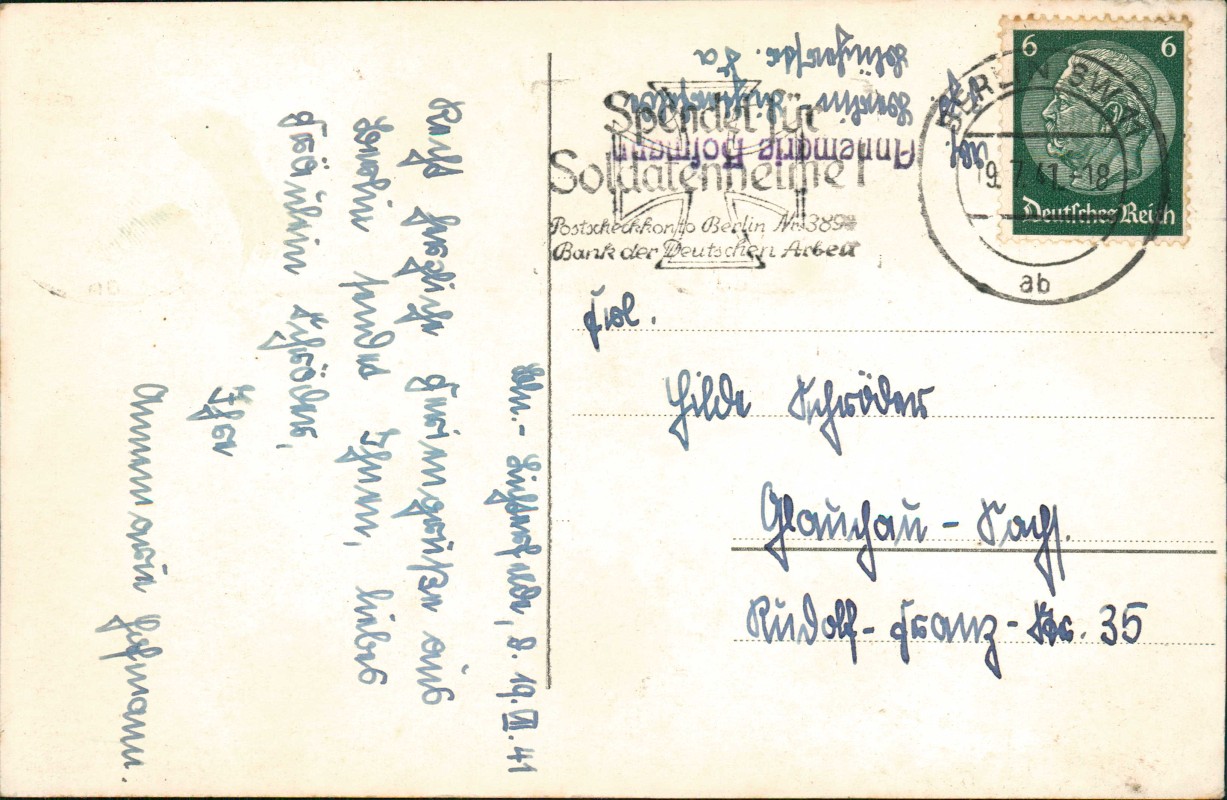 Bln.-Lichterfelde, d. 19.VII.41
Recht herzliche Feriengrüße aus
Berlin sendet Ihnen, liebes
Fräulein Schröder,
Ihre
Annemarie Hofmann.
Abs.
Annemarie Hofmann
Berlin Lichterfelde
Spendet für
Soldatenheime!
Postscheckkonto Berlin Nr. 389
Bank der Deutschen Arbeit
BERLIN SW 11
19.7.41.-18
ab
6 6
Deutsches Reich
Frl.
Hilde Schröder
Glauchau - Sachs.
Rudolf-Franz-Str. 35